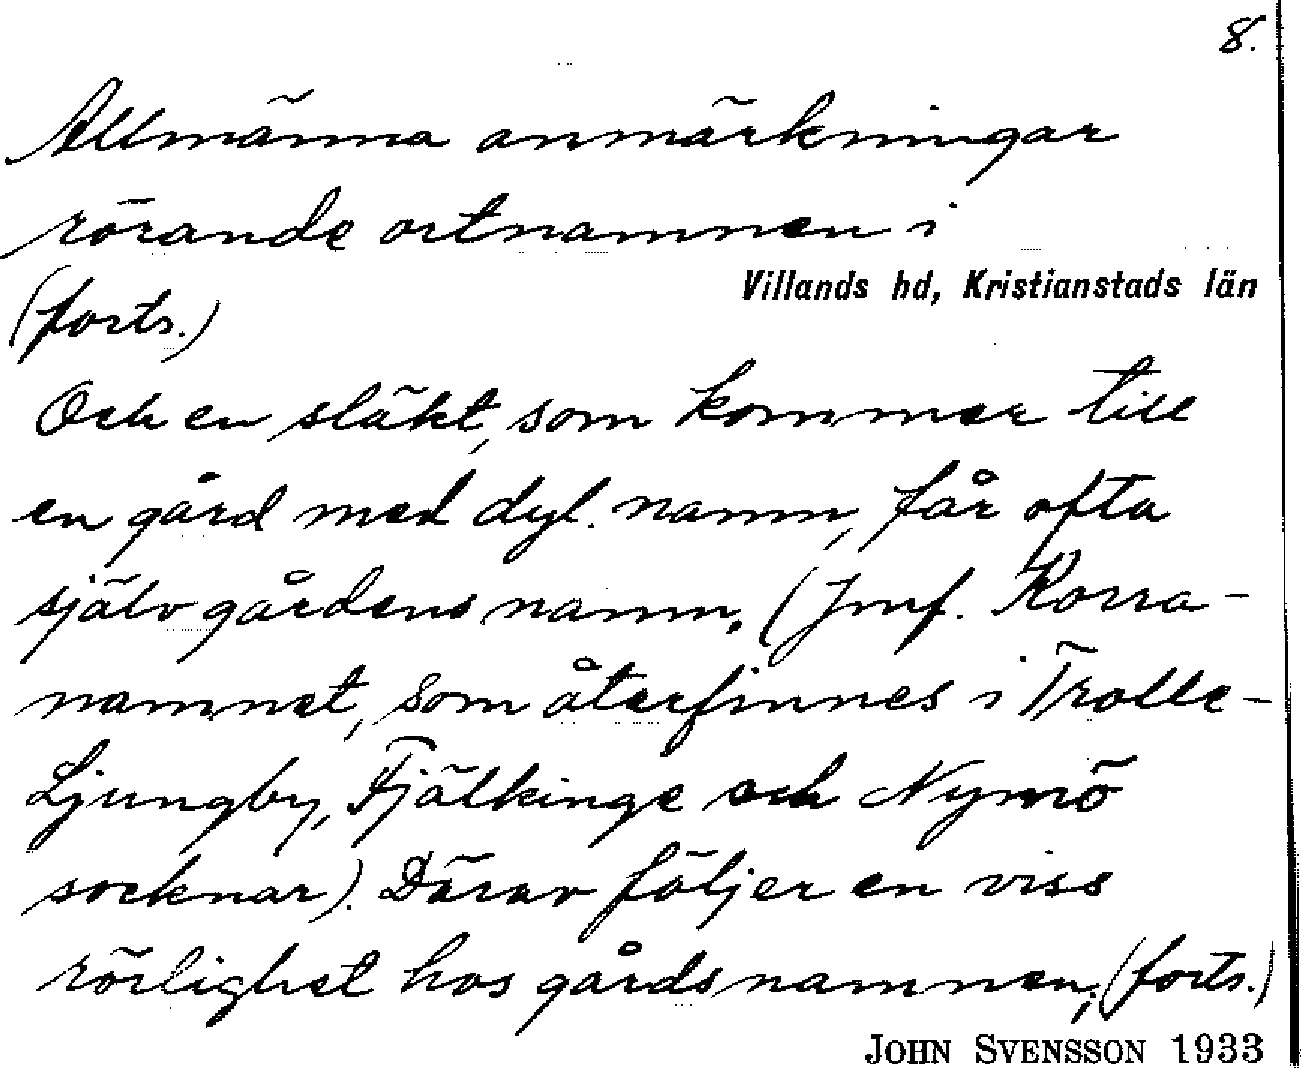 8.
Allmänna anmärkningar
rörande ortnamnen i
Villands hd, Kristianstads län
(forts.)
Och en släkt, som kommer till
en gård med dyl. namn, får ofta
själv gårdens namn. (Jmf. Korra-
namnet, som återfinnes i Trolle-
Ljungby, Fjälkinge och Nymö
socknar). Därav följer en viss
rörlighet hos gårdsnamnen; (forts.)
JOHN SVENSSON 1933